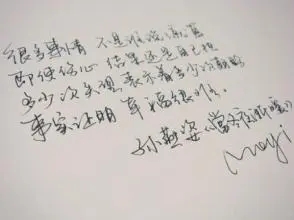 很多事情 不是谁说了就算
即使伤心 结果还是自己担
多少次失望表示着多少次期盼
事实证明 幸福很难
孙燕姿《当冬夜渐暖》